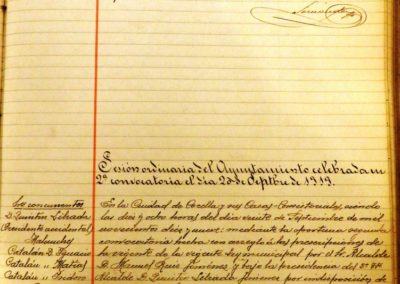 Sesión ordinaria del Ayuntamiento celebrada en
2ª convocatoria el día 20 de Septbre de 1919.
Sres concurrentes
D. Quintín
Presidente accidental
Catalán D. Ignacio
Catalán " Matías
Catalán "
En la Ciudad de Corella y sus Casas Consistoriales, siendo
las diez y ocho horas del día veinte de Septiembre de mil
novecientos diez y nueve; mediante la oportuna segunda
convocatoria hecha con arreglo á las prescripciones de
la vigente ley municipal por el Sr. Alcalde
D. Manuel Ruiz Jiménez y bajo la presidencia del 3er Tte
Alcalde D. Quintín Jimenez por indisposición de